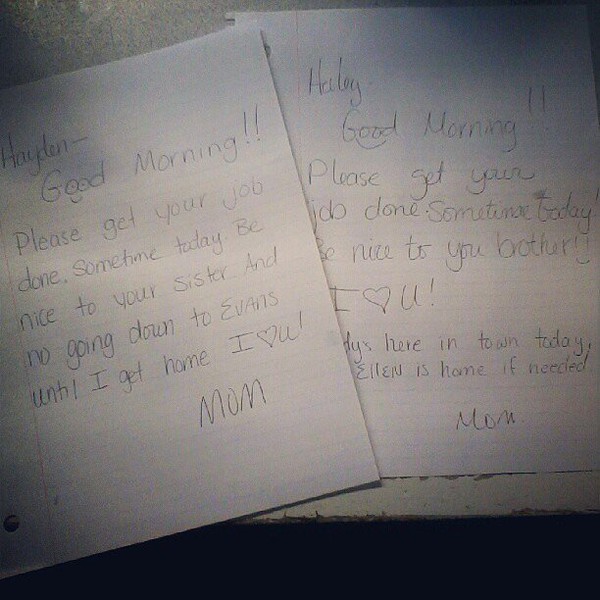 Hayden—
Good Morning!!
Please get your job
done. Sometime today. Be
nice to your sister And
no going down to Evans
until I get home I ♡ U!
MOM
Hailey-
Good Morning!!
Please get your
job done. Sometime today!
Be nice to you brother!!
I ♡ U!
dy's here in town today,
Ellen is home if needed.
Mom